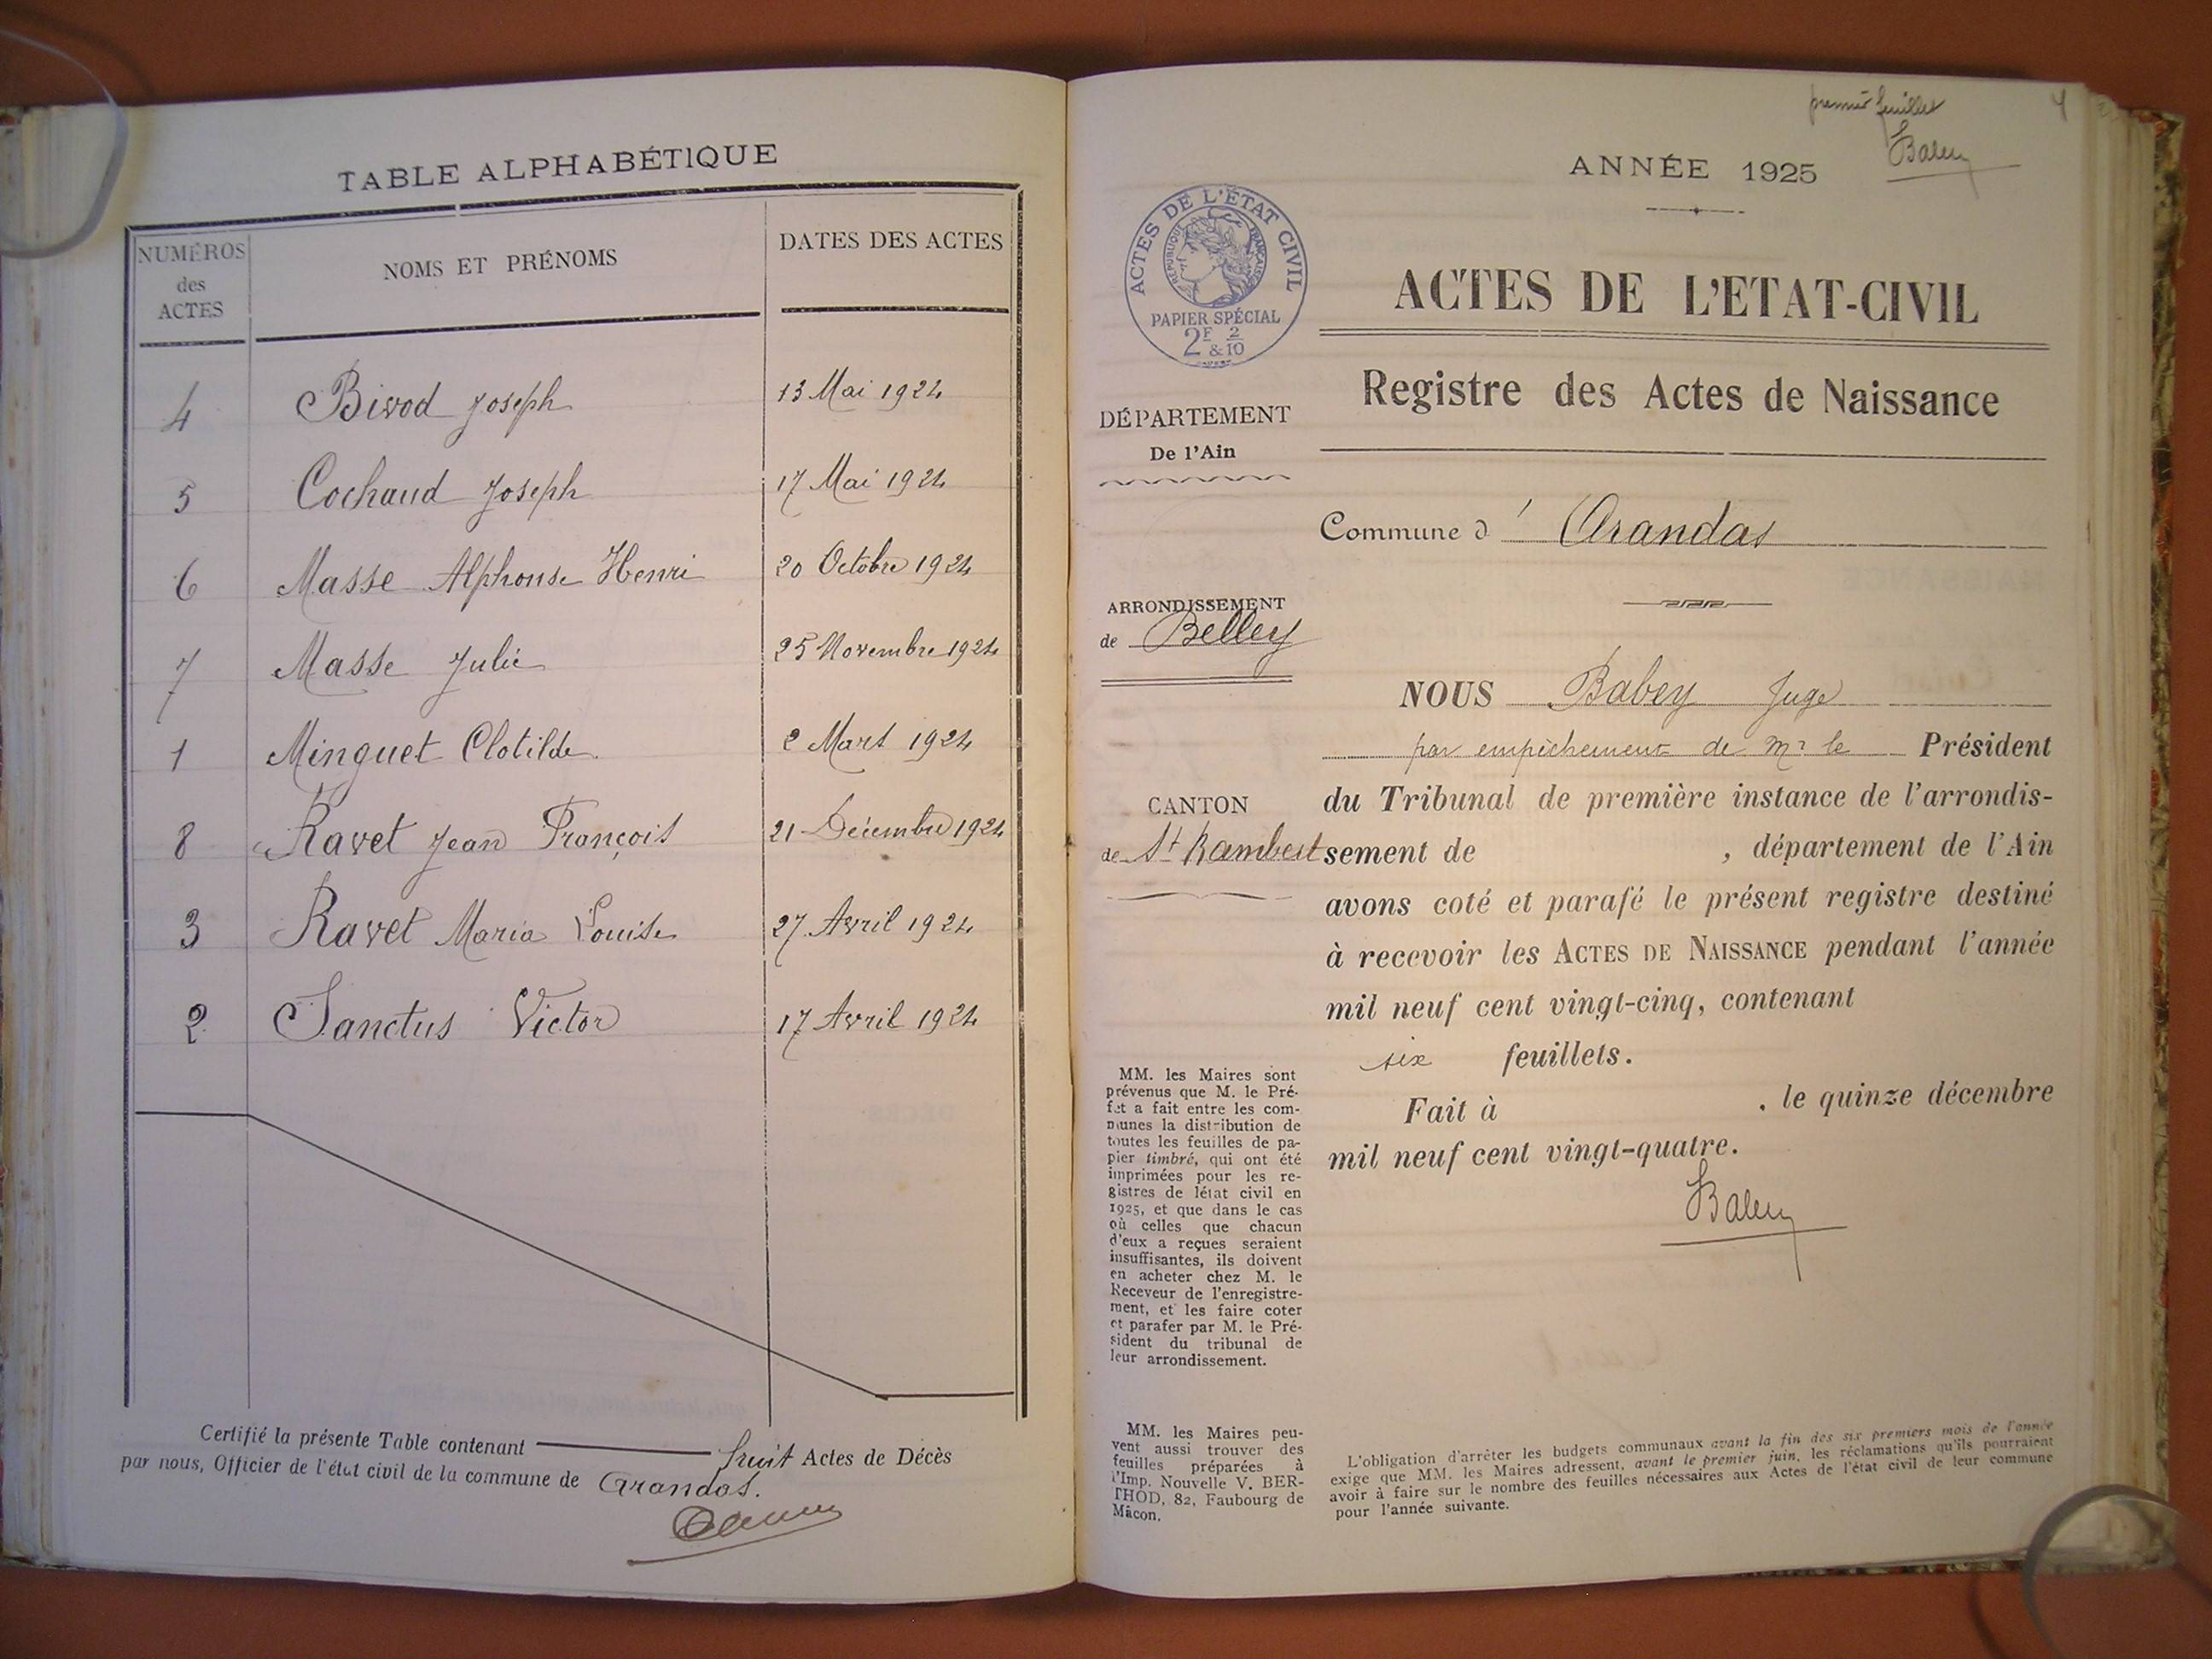 TABLE ALPHABÉTIQUE
NUMÉROS
des
ACTES
NOMS ET PRÉNOMS
DATES DES ACTES
4 Bivod Joseph 13 Mai 1924
5 Cochaud Joseph 17 Mai 1924
6 Masse Alphonse Henri 20 Octobre 1924
7 Masse Julie 25 Novembre 1924
1 Minguet Clotilde 2 Mars 1924
8 Ravet Jean François 21 Décembre 1924
3 Ravet Maria Louise 27 Avril 1924
2 Sanctus Victor 17 Avril 1924
Certifié la présente Table contenant huit Actes de Décès
par nous, Officier de l'état civil de la commune de Arandas.
premier feuillet
ANNÉE 1925
ACTES DE L'ÉTAT CIVIL
RÉPUBLIQUE FRANÇAISE
PAPIER SPÉCIAL
2F & 2/10
ACTES DE L'ETAT-CIVIL
Registre des Actes de Naissance
DÉPARTEMENT
De l'Ain
Commune d' Arandas
ARRONDISSEMENT
de Belley
CANTON
de St Rambert
NOUS Babey Juge
par empêchement de Mr le Président
du Tribunal de première instance de l'arrondis-
sement de , département de l'Ain
avons coté et parafé le présent registre destiné
à recevoir les ACTES DE NAISSANCE pendant l'année
mil neuf cent vingt-cinq, contenant
six feuillets.
Fait à , le quinze décembre
mil neuf cent vingt-quatre.
Babey
MM. les Maires sont
prévenus que M. le Pré-
fet a fait entre les com-
munes la distribution de
toutes les feuilles de pa-
pier timbré, qui ont été
imprimées pour les re-
gistres de létat civil en
1925, et que dans le cas
où celles que chacun
d'eux a reçues seraient
insuffisantes, ils doivent
en acheter chez M. le
Receveur de l'enregistre-
ment, et les faire coter
et parafer par M. le Pré-
sident du tribunal de
leur arrondissement.
MM. les Maires peu-
vent aussi trouver des
feuilles préparées à
l'Imp. Nouvelle V. BER-
THOD, 82, Faubourg de
Mâcon.
L'obligation d'arrêter les budgets communaux avant la fin des six premiers mois de l'année
exige que MM. les Maires adressent, avant le premier juin, les réclamations qu'ils pourraient
avoir à faire sur le nombre des feuilles nécessaires aux Actes de l'état civil de leur commune
pour l'année suivante.